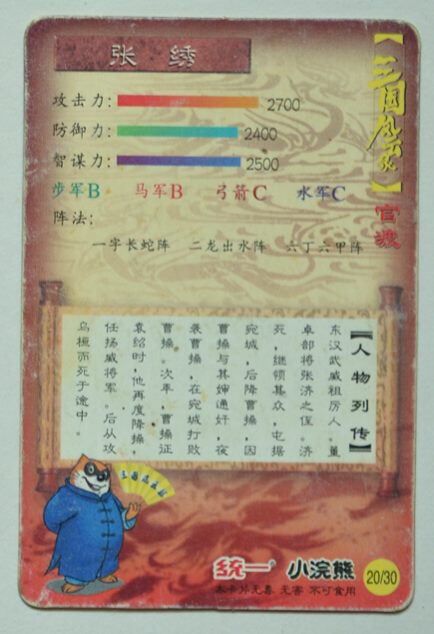 张绣
【三国风云】
官渡
攻击力: 2700
防御力: 2400
智谋力: 2500
步军B 马军B 弓箭C 水军C
阵法:
一字长蛇阵 二龙出水阵 六丁六甲阵
【人物列传】
东汉武威祖厉人。董
卓部将张济之侄。济
死,继领其众,屯据
宛城,后降曹操,因
曹操与其婶通奸,夜
袭曹操,在宛城打败
曹操。次年,曹操征
袁绍时,他再度降操,
任扬威将军。后从攻
乌桓而死于途中。
统一® 小浣熊
20/30
本卡片无毒 无害 不可食用